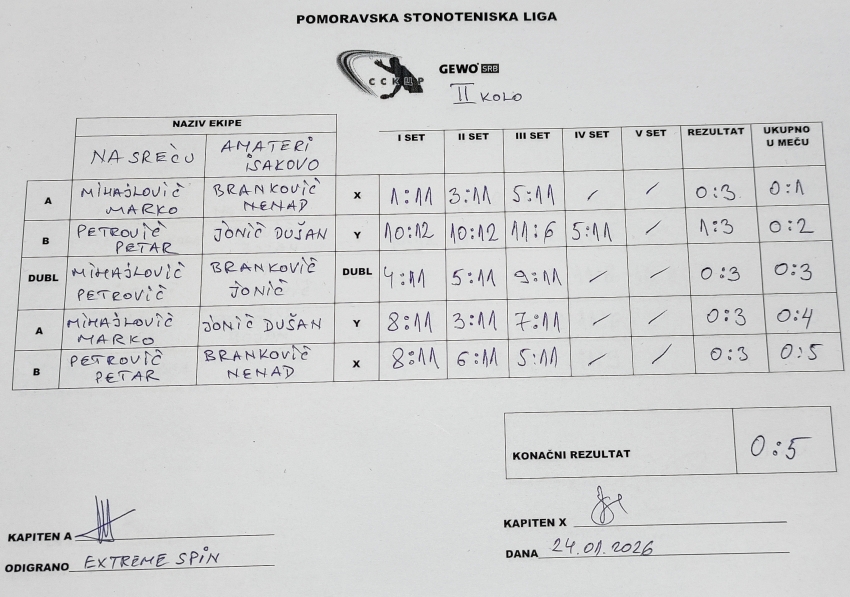 POMORAVSKA STONOTENISKA LIGA
CCKUP
GEWO SRB
II KOLO
NAZIV EKIPE
I SET II SET III SET IV SET V SET REZULTAT UKUPNO U MEČU
NA SREĆU AMATERI ISAKOVO
A MIHAJLOVIĆ MARKO BRANKOVIĆ NENAD X 1:11 3:11 5:11 / / 0:3 0:1
B PETROVIĆ PETAR JONIĆ DUŠAN Y 10:12 10:12 11:6 5:11 / 1:3 0:2
DUBL MIHAJLOVIĆ PETROVIĆ BRANKOVIĆ JONIĆ DUBL 4:11 5:11 9:11 / / 0:3 0:3
A MIHAJLOVIĆ MARKO JONIĆ DUŠAN Y 8:11 3:11 7:11 / / 0:3 0:4
B PETROVIĆ PETAR BRANKOVIĆ NENAD X 8:11 6:11 5:11 / / 0:3 0:5
KONAČNI REZULTAT 0:5
KAPITEN A
KAPITEN X
ODIGRANO EXTREME SPIN
DANA 24.01.2026